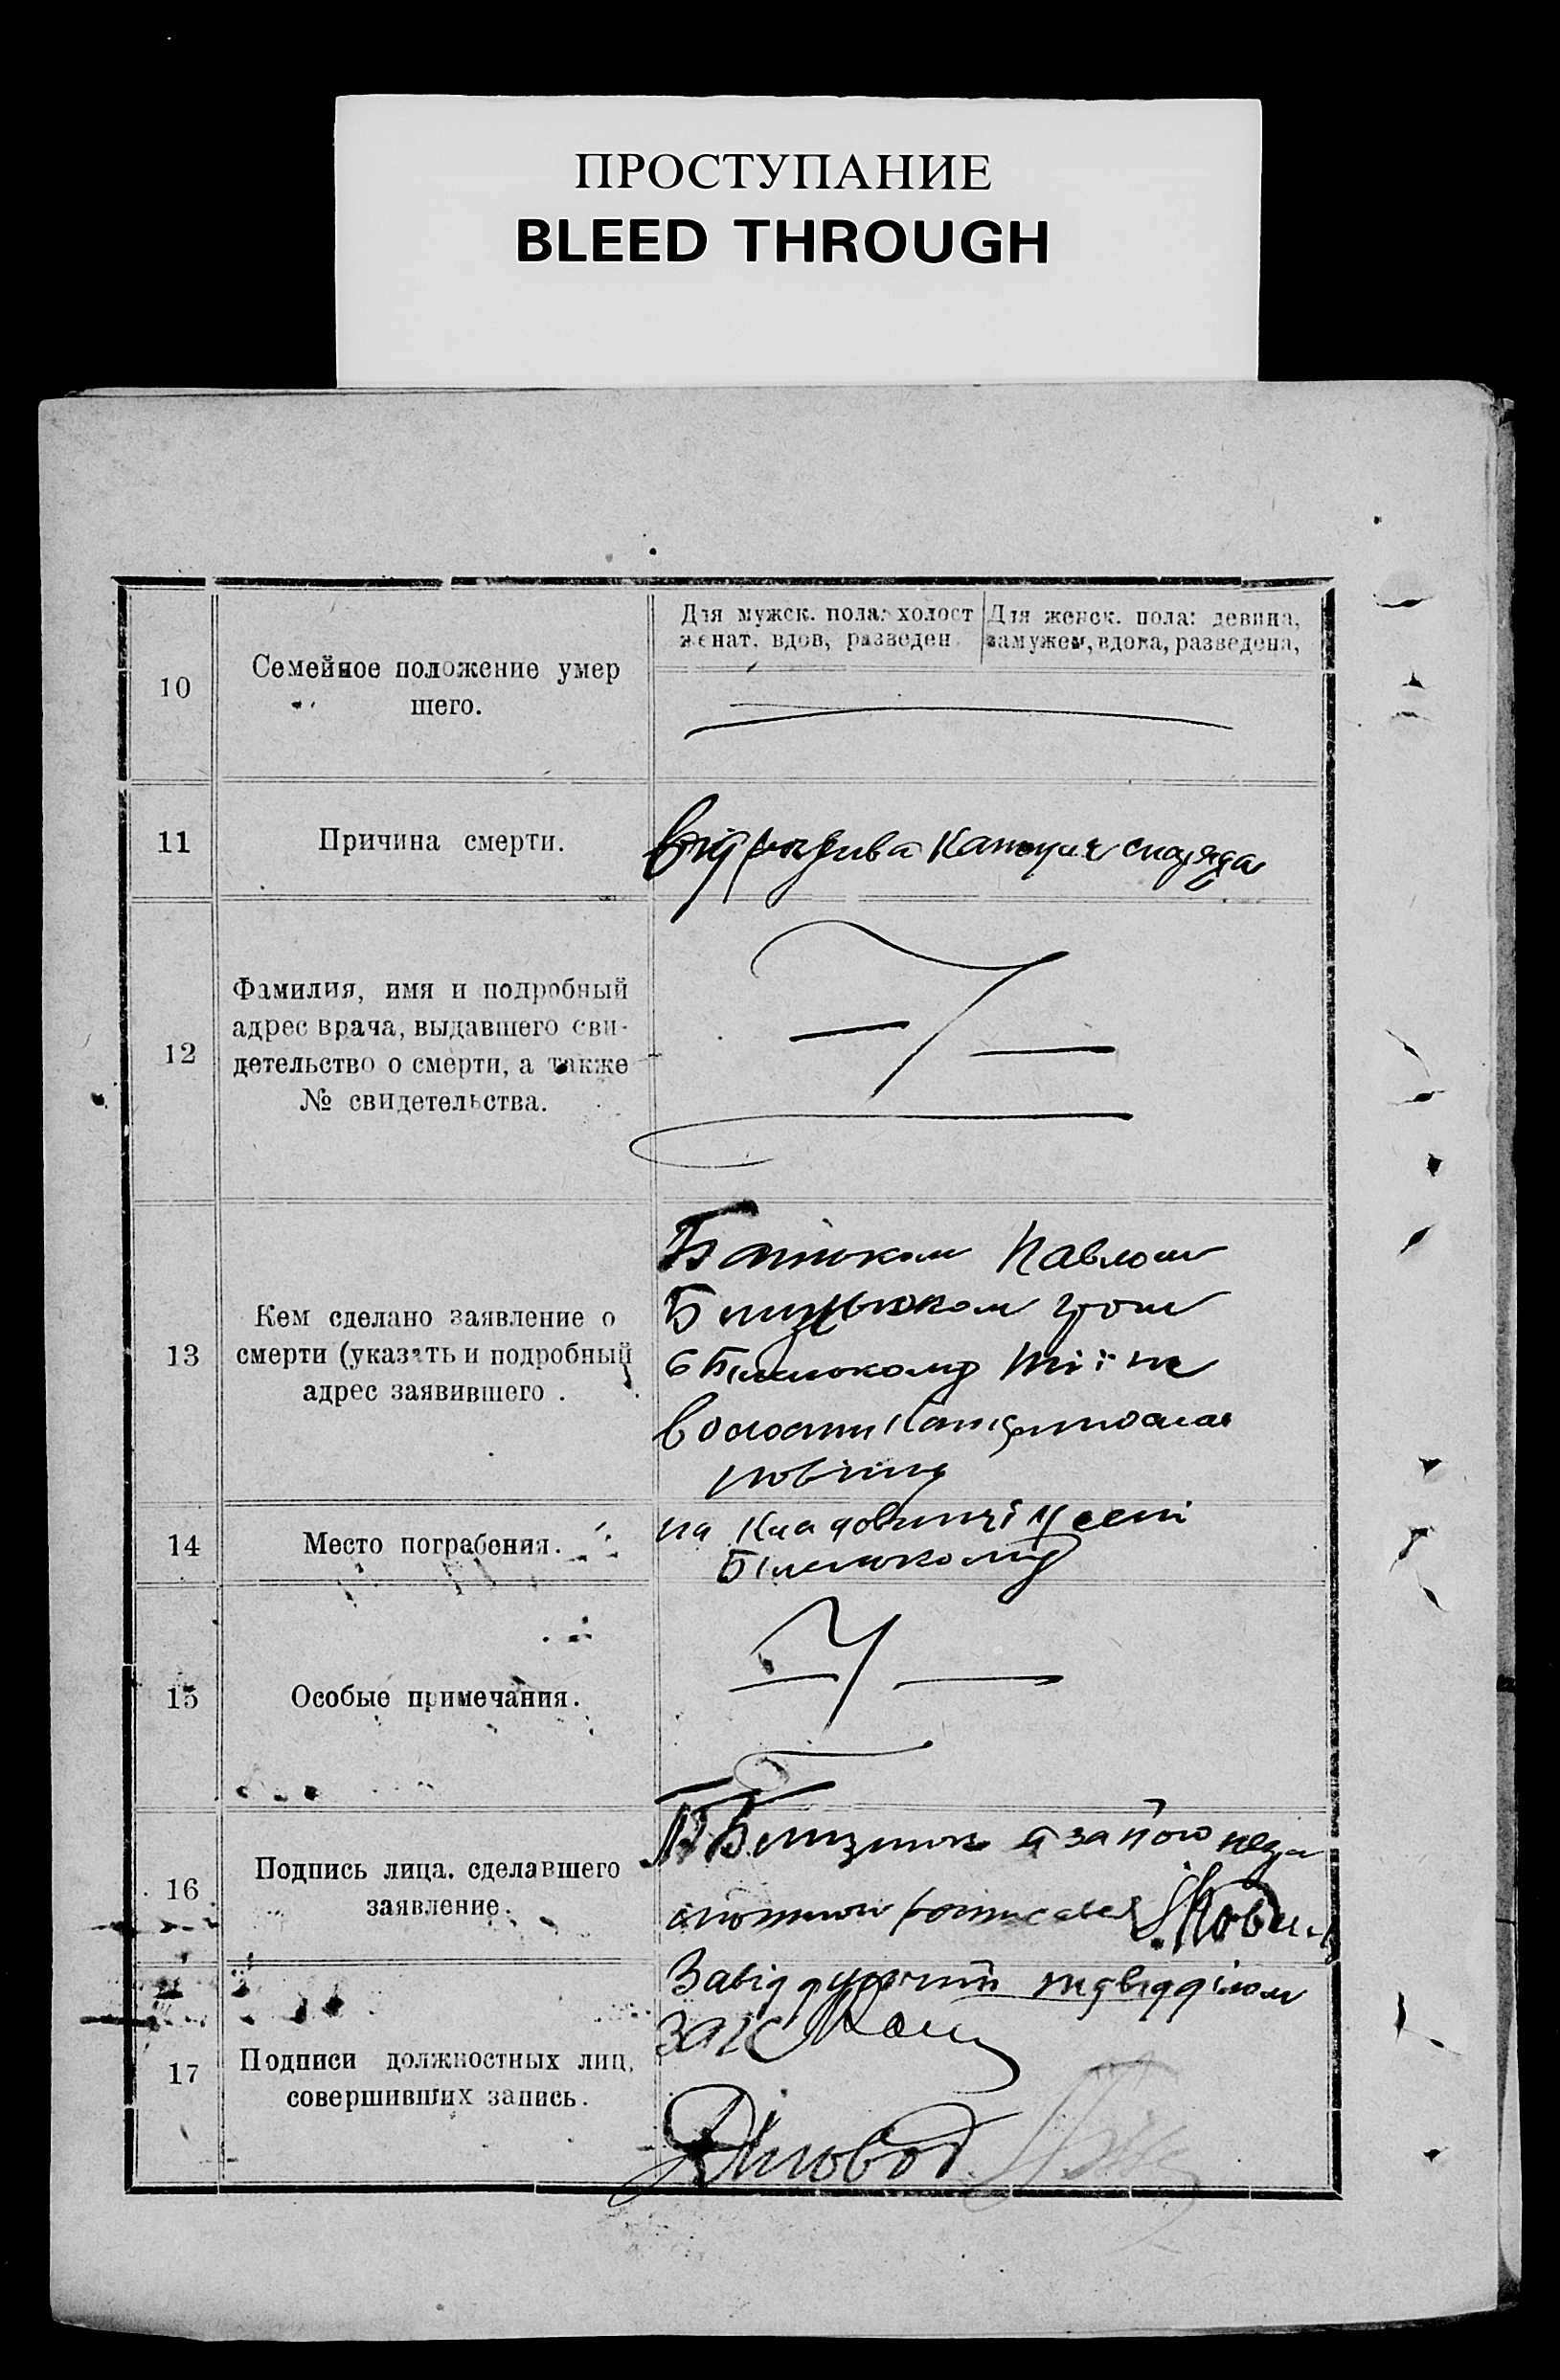 ПРОСТУПАНИЕ
BLEED THROUGH
10
Семейное положение умер
щего.
Для мужск. пола: холост
женат, вдов, разведен.
Для женск. пола: девица,
замужем, вдова, разведена,
11
Причина смерти.
від розрива снаряда
12
Фамилия, имя и подробный
адрес врача, выдавшего сви-
детельство о смерти, а также
№ свидетельства.
13
Кем сделано заявление о
смерти (указать и подробный
адрес заявившего .
Батьком Павлом
гром
волости
повіту
14
Место пограбения.
на кладовищі у селі
15
Особые примечания.
16
Подпись лица. сделавшего
заявление.
а за його
17
Подписи должностных лиц,
совершивших запись.
Завідуючий підвідділом
ЗАГС
Діловод